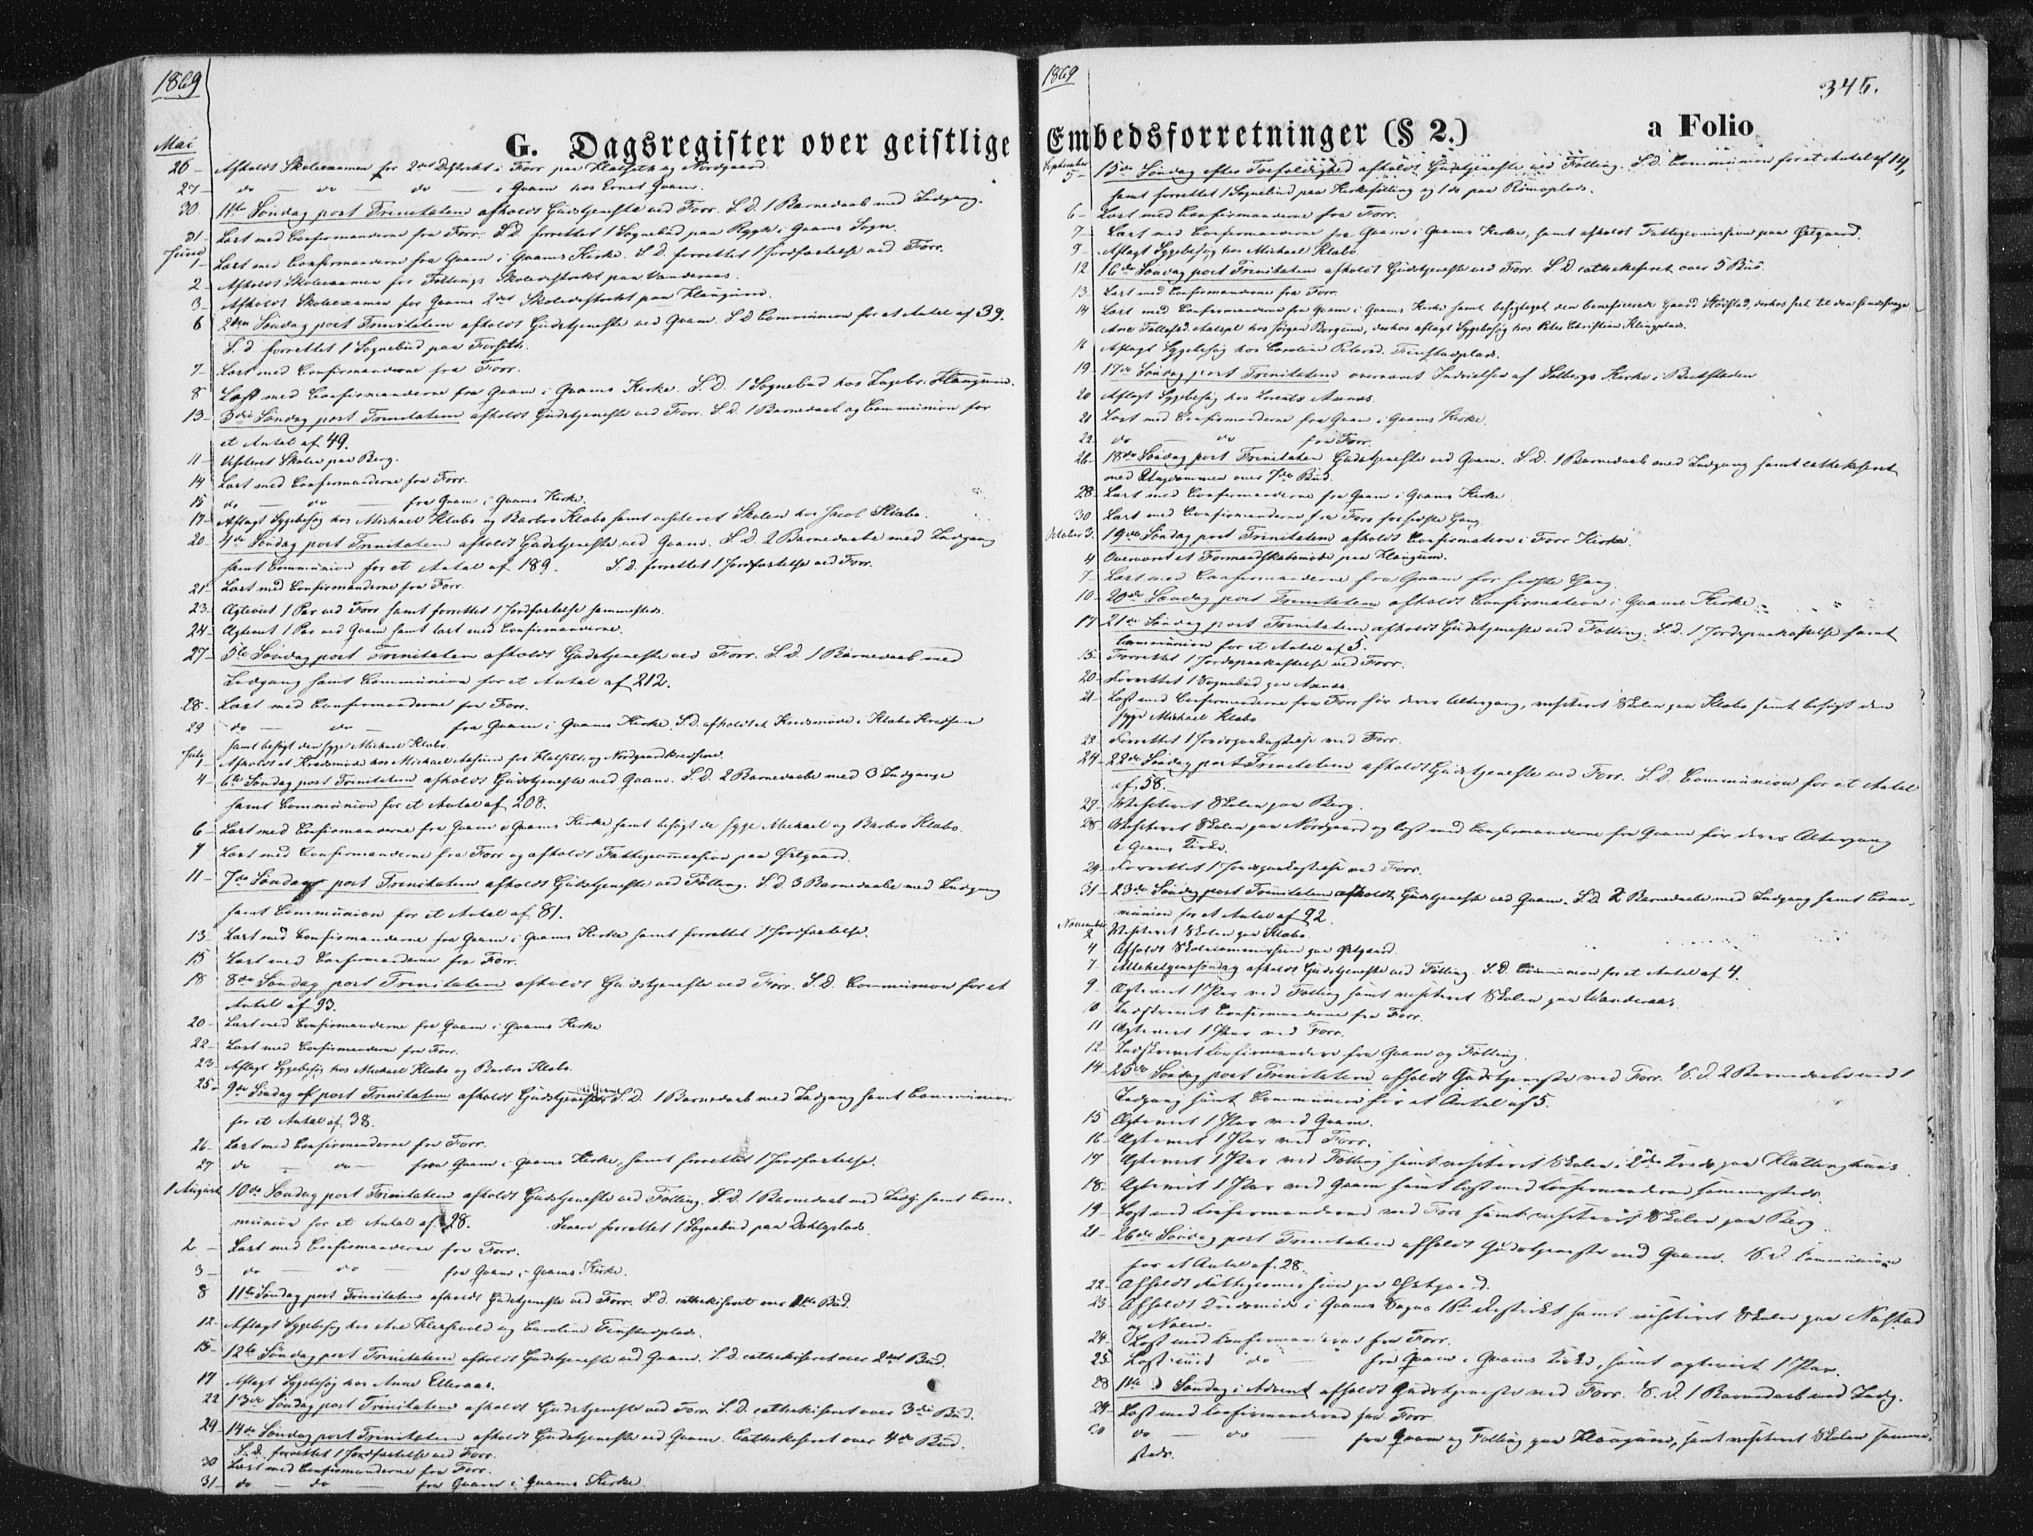 1869
G. Dagsregister over geistlige
Mai
26 - Afholdt Skoleexamen for 2det Distrikt i Forr paa Klathalt og Nordgaard.
27 - do — do — do — i Qvam hos Ernst Qvam.
30 11te Søndag post Trinitatem afholdt Gudstjeneste ved Forr. S. D. 1 Barnedaab med Indgang.
31 Læst med Confirmanderne fra Forr. S.D. forrettet 1 Sognebud paa Rygh i Qvams Sogn.
Juni
1 - Læst med Confirmanderne fra Qvam i Qvams Kirke. S. D. forrettet 1 Jordfæstelse ved Forr.
2 - Afholdt Skoleexamen for Føllings Skoledistrikt paa Vandernes.
3 - Afholdt Skoleexamen for Qvams 2det Skoledistrikt paa Haugum.
6 2den Søndag post Trinitatem afholdt Gudstjeneste ved Qvam. S.D. Communion for et Antal af 39.
S. d. forrettet 1 Sognebud paa Forseth.
7 - Læst med Confirmanderne fra Forr.
8 Læst med Confirmanderne fra Qvam i Qvams Kirke. S. D. 1 Sognebud hos Ingebr. Haugum.
13 - 3die Søndag post Trinitatem afholdt Gudstjeneste ved Forr. S. D. 1 Barnedaab og Communion for
et Antal af 49.
11 - Visiteret Skolen paa Berg.
14 Læst med Confirmanderne fra Forr.
15 do — do — fra Qvam i Qvams Kirke.
17 - Aflagt Sygebesøg hos Michael Klabo og Barbro Klabo samt visiteret Skolen hos Jacob Klabo.
20 - 4de Søndag post Trinitatem afholdt Gudstjeneste ved Qvam. S. D. 2 Barnedaabe med Indgang
samt Communion for et Antal af 189. S. d. forrettet 1 Jordfæstelse ved Forr.
21 - Læst med Confirmanderne fra Forr.
23 - Ægteviet 1 Par ved Forr samt forrettet 1 Jordfæstelse sammesteds.
24 - Ægteviet 1 Par ved Qvam samt læst med Confirmanderne.
27 - 5te Søndag post Trinitatem afholdt Gudstjeneste ved Forr. S. D. 1 Barnedaab med
Indgang samt Communion for et Antal af 212.
28 - Læst med Confirmanderne fra Forr.
29 do — do — fra Qvam i Qvams Kirke. S.D. afholdt et Kredsmøde i Klabo Kredsen
samt besøgt den syge Michael Klabo.
July
1 - Afholdt et Kredsmøde hos Michael Aasum for Hatfald- og Nordgaardkredsene.
4 - 6te Søndag post Trinitatem afholdt Gudstjeneste ved Qvam. S. D. 2 Barnedaabe med 3 Indgange
samt Communion for et Antal af 208.
6 - Læst med Confirmanderne fra Qvam i Qvams Kirke samt besøgt de syge Michael og Barbro Klabo.
7 Læst med Confirmanderne fra Forr og afholdt Fattigcommission paa Østgaard.
11 - 7de Søndag post Trinitatem afholdt Gudstjeneste ved Følling. S. D. 3 Barnedaabe med Indgang
samt Communion for et Antal af 81.
13 - Læst med Confirmanderne fra Qvam i Qvams Kirke samt forrettet 1 Jordfæstelse.
15 Læst med Confirmanderne fra Forr.
18 8de Søndag post Trinitatem afholdt Gudstjeneste ved Forr. S. D. Communion for et
Antal af 93.
20 - Læst med Confirmanderne fra Qvam i Qvams Kirke
22 - Læst med Confirmanderne fra Forr.
23 Aflagt Sygebesøg hos Michael Klabo og Barbro Klabo.
25 - 9de Søndag post Trinitatem afholdt Gudstjeneste ved Qvam S. D. 1 Barnedaab med Indgang samt Communion
for et Antal af 38.
26 - Læst med Confirmanderne fra Forr.
27 do — do — fra Qvam i Qvams Kirke, samt forrettet 1 Jordfæstelse.
1 August 10de Søndag post Trinitatem afholdt Gudstjeneste ved Følling. S. D. 1 Barnedaab med Indg. samt Com-
munion for et Antal af 28. Senere forrettet 1 Sognebud paa Dahlsplads.
2 - Læst med Confirmanderne fra Forr.
3 - do — do — fra Qvam i Qvams Kirke.
8 11te Søndag post Trinitatem afholdt Gudstjeneste ved Forr. S. d. cathekiseret over 1ste Bud.
12 - Aflagt Sygebesøg hos Ane og Caroline Finstadplads.
15 - 12te Søndag post Trinitatem afholdt Gudstjeneste ved Qvam. S. d. cathekiseret over 2det Bud.
17 Aflagt Sygebesøg hos Anne Elleraas.
22 13de Søndag post Trinitatem afholdt Gudstjeneste ved Forr S. D. cathekiseret over 3die Bud.
29 - 14de Søndag post Trinitatem afholdt Gudstjeneste ved Qvam. Cathekiseret over 4de Bud.
S. d. forrettet 1 Jordfæstelse ved Forr.
30 Læst med Confirmanderne fra Forr.
31 - do — do — fra Qvam i Qvams Kirke.
1869
345.
Embedsforretninger (§ 2.) a Folio
September
5 - 15de Søndag efter Trefoldighed afholdt Gudstjeneste ved Følling. S. d. Communion for et Antal af 14,
samt forrettet 1 Sognebud paa Kirkefølling og 1 do paa Rømoplads.
6 - Læst med Confirmanderne fra Forr.
7 - Læst med Confirmanderne fra Qvam i Qvams Kirke, samt afholdt Fattigcommission paa Østgaard.
9 - Aflagt Sygebesøg hos Michael Klabo
12 16de Søndag post Trinitatem afholdt Gudstjeneste ved Forr. S D cathekiseret over 5 Bud.
13 - Læst med Confirmanderne fra Forr.
14 Læst med Confirmanderne fra Qvam i Qvams Kirke samt besigtiget den beneficerede Gaard
Ane hos Jørgen Borgum, derhos aflagt Sygebesøg hos Peter Christian Klingplads.
16 Aflagt Sygebesøg hos Caroline Petersd. Finstadplads.
19 17de Søndag post Trinitatem overværet Indvielsen af Solbergs Kirke i Beitstaden
20 Aflagt Sygebesøg hos Lorents Aanæs.
21 Læst med Confirmanderne fra Qvam i Qvams Kirke.
22 do — do fra Forr.
26 - 18de Søndag post Trinitatem Gudstjeneste ved Qvam. S. D. 1 Barnedaab med Indgang samt cathekiseret
med Ungdommen over 7de Bud.
28 - Læst med Confirmanderne fra Qvam i Qvams Kirke.
30 Læst med Confirmanderne fra Forr for sidste Gang.
October 3. 19de Søndag post Trinitatem afholdt Confirmation i Forr Kirke.
4 Overværet et Formandskabsmøde paa Haugum.
7 - Læst med Confirmanderne fra Qvam for sidste Gang.
10 - 20de Søndag post Trinitatem afholdt Confirmation i Qvams Kirke.
17 21de Søndag post Trinitatem afholdt Gudstjeneste ved Følling. S. D. 1 Jordspaakastelse samt
Communion for et Antal af 5.
15 - Forrettet 1 Jordspaakastelse ved Forr.
20 - Forrettet 1 Sognebud paa Aanæs.
21 - Læst med Confirmanderne fra Forr før deres Altergang, visiteret Skolen paa Klabo samt besøgt den
syge Michael Klabo.
23 Forrettet 1 Jordspaakastelse ved Forr.
24 - 22de Søndag post Trinitatem afholdt Gudstjeneste ved Forr. S. D. Communion for et Antal
af 58.
27 - Visiteret Skolen paa Berg.
28 Visiteret Skolen paa Nordgaard og læst med Confirmanderne fra Qvam før deres Altergang
i Qvams Kirke.
29 - Forrettet 1 Jordspaakastelse ved Forr.
31 - 23de Søndag post Trinitatem afholdt Gudstjeneste ved Qvam. S.D. 2 Barnedaabe med Indgang samt Com-
munion for et Antal af 92.
November
2 Visiteret Skolen paa Klabo.
4 Afholdt Skolecommission paa Østgaard.
7 - Allehelgenssøndag afholdt Gudstjeneste ved Følling. S. D. Communion for et Antal af 4.
9 Ægteviet 1 Par ved Følling samt visiteret Skolen paa Wandernes.
10 Indskrevet Confirmanderne fra Forr.
11 Ægteviet 1 Par ved Forr.
12 - Indskrevet Confirmandere fra Qvam og Følling.
14 - 25de Søndag post Trinitatem afholdt Gudstjeneste ved Forr. S. d. 2 Barnedaabe med 1
Indgang samt Communion for et Antal af 5.
15 Ægteviet 1 Par ved Qvam.
16 - Ægteviet 1 Par ved Forr.
17 Ægteviet 1 Par ved Følling samt visiteret Skolen i 2den Kreds paa
18 - Ægteviet 1 Par ved Qvam samt læst med Confirmanderne sammesteds.
19 - Læst med Confirmanderne ved Forr samt visiteret Skolen paa Berg.
21 - 26de Søndag post Trinitatem afholdt Gudstjeneste ved Qvam. S. d. Communion
for et Antal af 28.
22 - Afholdt Fattigcommission paa Østgaard.
23 - Afholdt Kredsmøde i Qvams Sogns 1ste Distrikt samt visiteret Skolen paa Nalstad
og Nalen.
24 - Læst med Confirmanderne fra Forr.
25 Læst med do — fra Qvam i Qvams Kirke, samt ægteviet 1 Par.
28 1ste Søndag i Advent afholdt Gudstjeneste ved Forr. S. d. 1 Barnedaab med Indg.
29 - Læst med Confirmanderne fra Forr.
30 do — do — fra Qvam og Følling paa Haugum, samt visiteret Skolen samme-
steds.